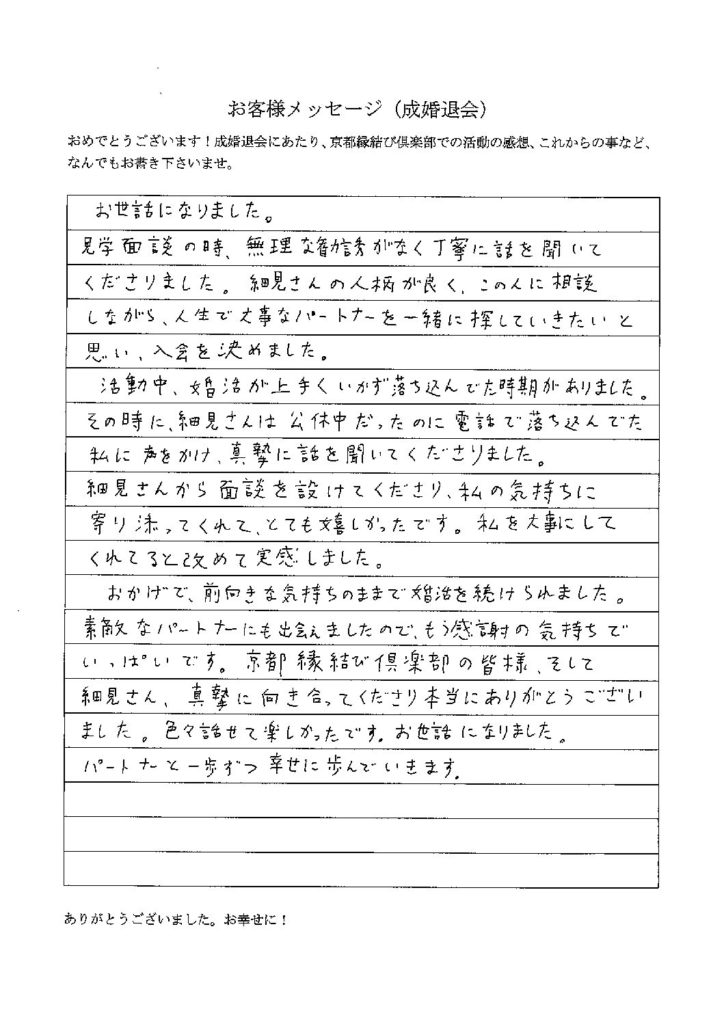 お客様メッセージ（成婚退会）
おめでとうございます！成婚退会にあたり、京都縁結び倶楽部での活動の感想、これからの事など、
なんでもお書き下さいませ。
お世話になりました。
見学面談の時、無理な勧誘がなく丁寧に話を聞いて
くださりました。細見さんの人柄が良く、この人に相談
しながら、人生で大事なパートナーを一緒に探していきたいと
思い、入会を決めました。
活動中、婚活が上手くいかず落ち込んでた時期がありました。
その時に、細見さんは公休中だったのに電話で落ち込んでた
私に声をかけ、真摯に話を聞いてくださりました。
細見さんから面談を設けてくださり、私の気持ちに
寄り添ってくれて、とても嬉しかったです。私を大事にして
くれてると改めて実感しました。
おかげで、前向きな気持ちのままで婚活を続けられました。
素敵なパートナーにも出会えましたので、もう感謝の気持ちで
いっぱいです。京都縁結び倶楽部の皆様、そして
細見さん、真摯に向き合ってくださり本当にありがとうござい
ました。色々話せて楽しかったです。お世話になりました。
パートナーと一歩ずつ幸せに歩んでいきます。
ありがとうございました。お幸せに！